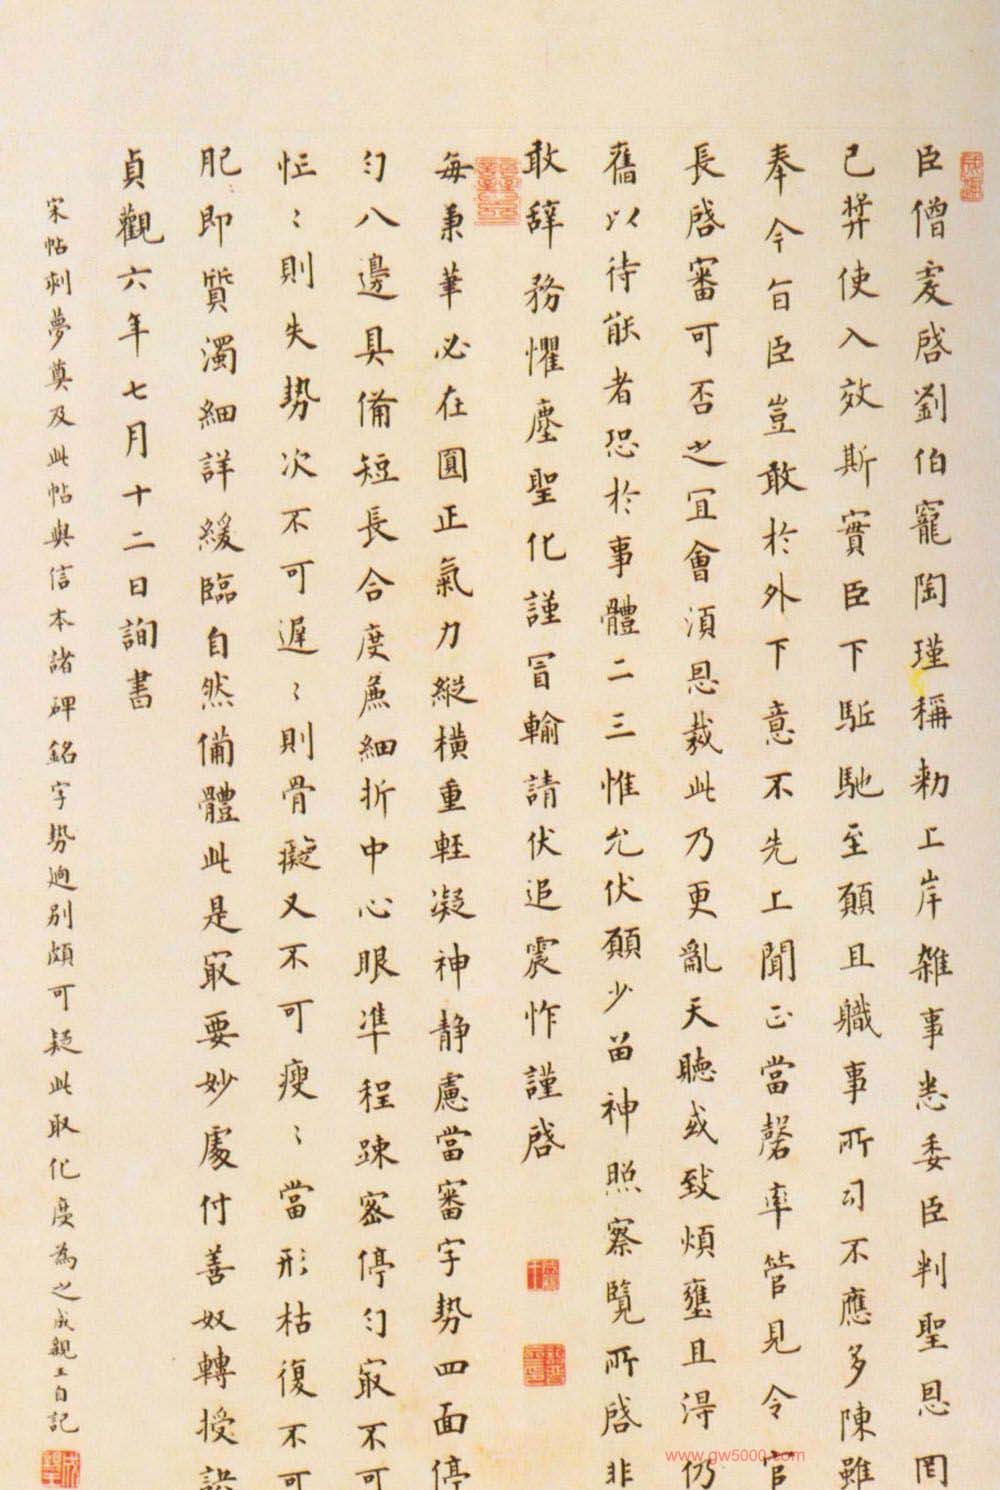 臣僧虔啓劉伯寵陶瑾稱勑上岸雜事悉委臣判聖恩罔
已使入效斯實臣下駈馳至願且職事所司不應多陳雖
奉今旨臣豈敢於外下意不先上聞正當罄率管見令官
長啓審可否之宜會湏恩裁此乃更亂天聽或致煩壅且淂仍
舊以待能者恐於事體二三惟允伏願少留神照察覽所啓非
敢辭務懼塵聖化謹冒輸請伏追震怍謹啓
每秉筆必在圓正氣力縱橫重輕凝神静慮當審字勢四面停
匀八邊具備短長合度麁細折中心眼準程踈密停匀最不可
忙〻則失勢次不可遲〻則骨癡又不可瘦〻當形枯復不可
肥即質濁細詳緩臨自然備體此是最要妙處付善奴轉授訣
貞觀六年七月十二日詢書
宋帖刺夢奠及此帖與信本諸碑銘字勢逈別頗可疑此取化度為之成親王自記
www.gw5000.com